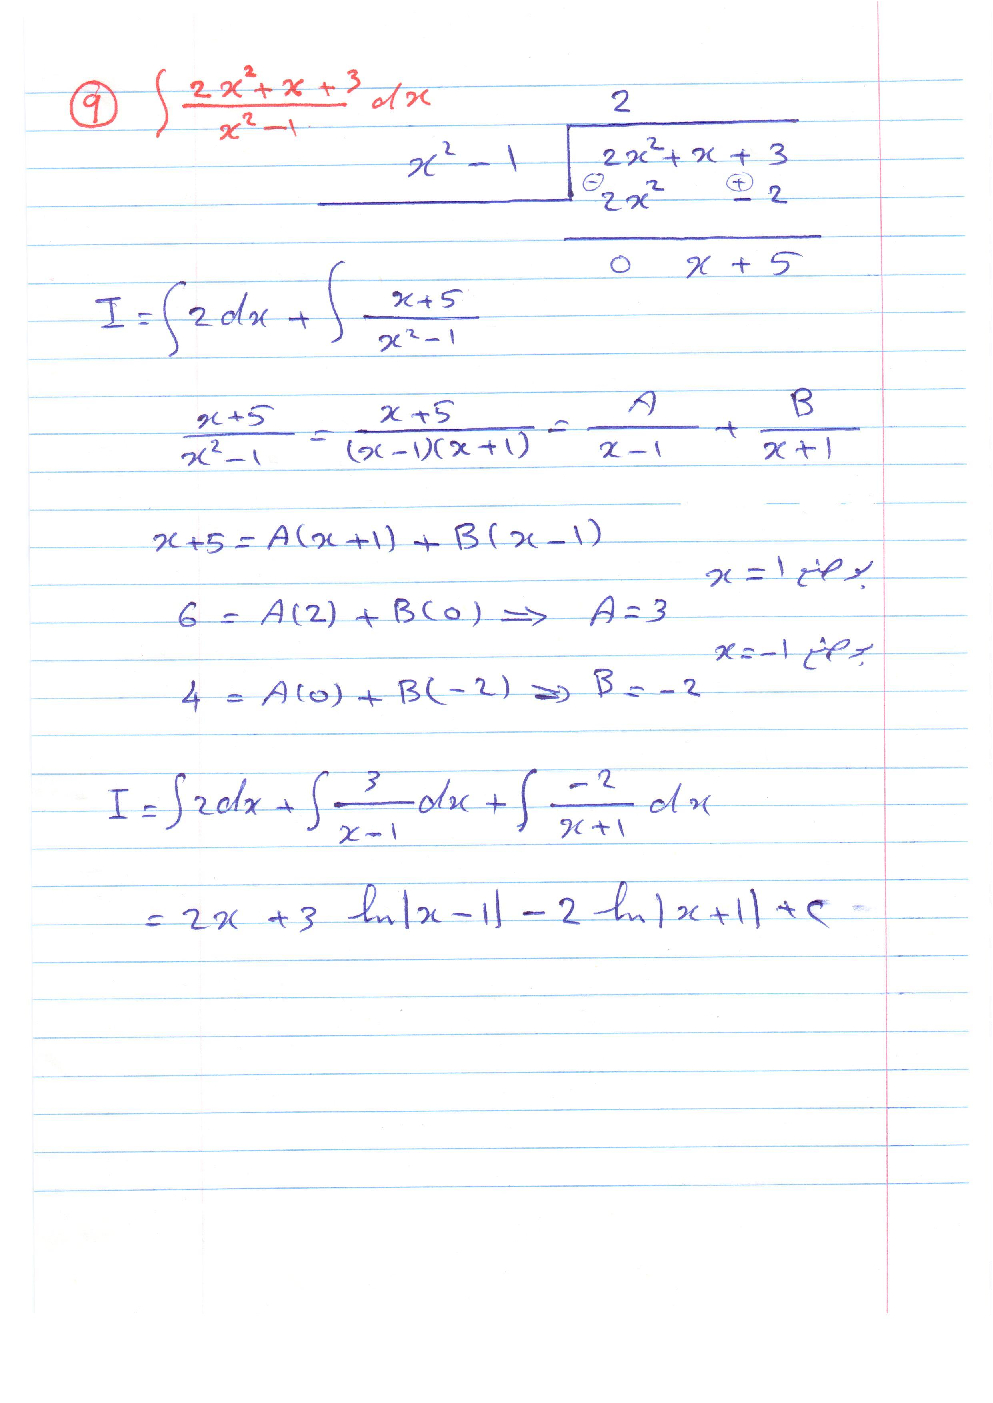 ⑨ ∫ (2x²+x+3)/(x²-1) dx
2
x²-1 | 2x²+x+3
⊖ 2x² ⊕ - 2
0 x+5
I = ∫2dx + ∫ (x+5)/(x²-1)
(x+5)/(x²-1) = (x+5)/((x-1)(x+1)) = A/(x-1) + B/(x+1)
x+5 = A(x+1) + B(x-1)
بوضع x=1
6 = A(2) + B(0) ⇒ A=3
بوضع x=-1
4 = A(0) + B(-2) ⇒ B=-2
I = ∫2dx + ∫ 3/(x-1) dx + ∫ -2/(x+1) dx
= 2x + 3 ln|x-1| - 2 ln|x+1| + c